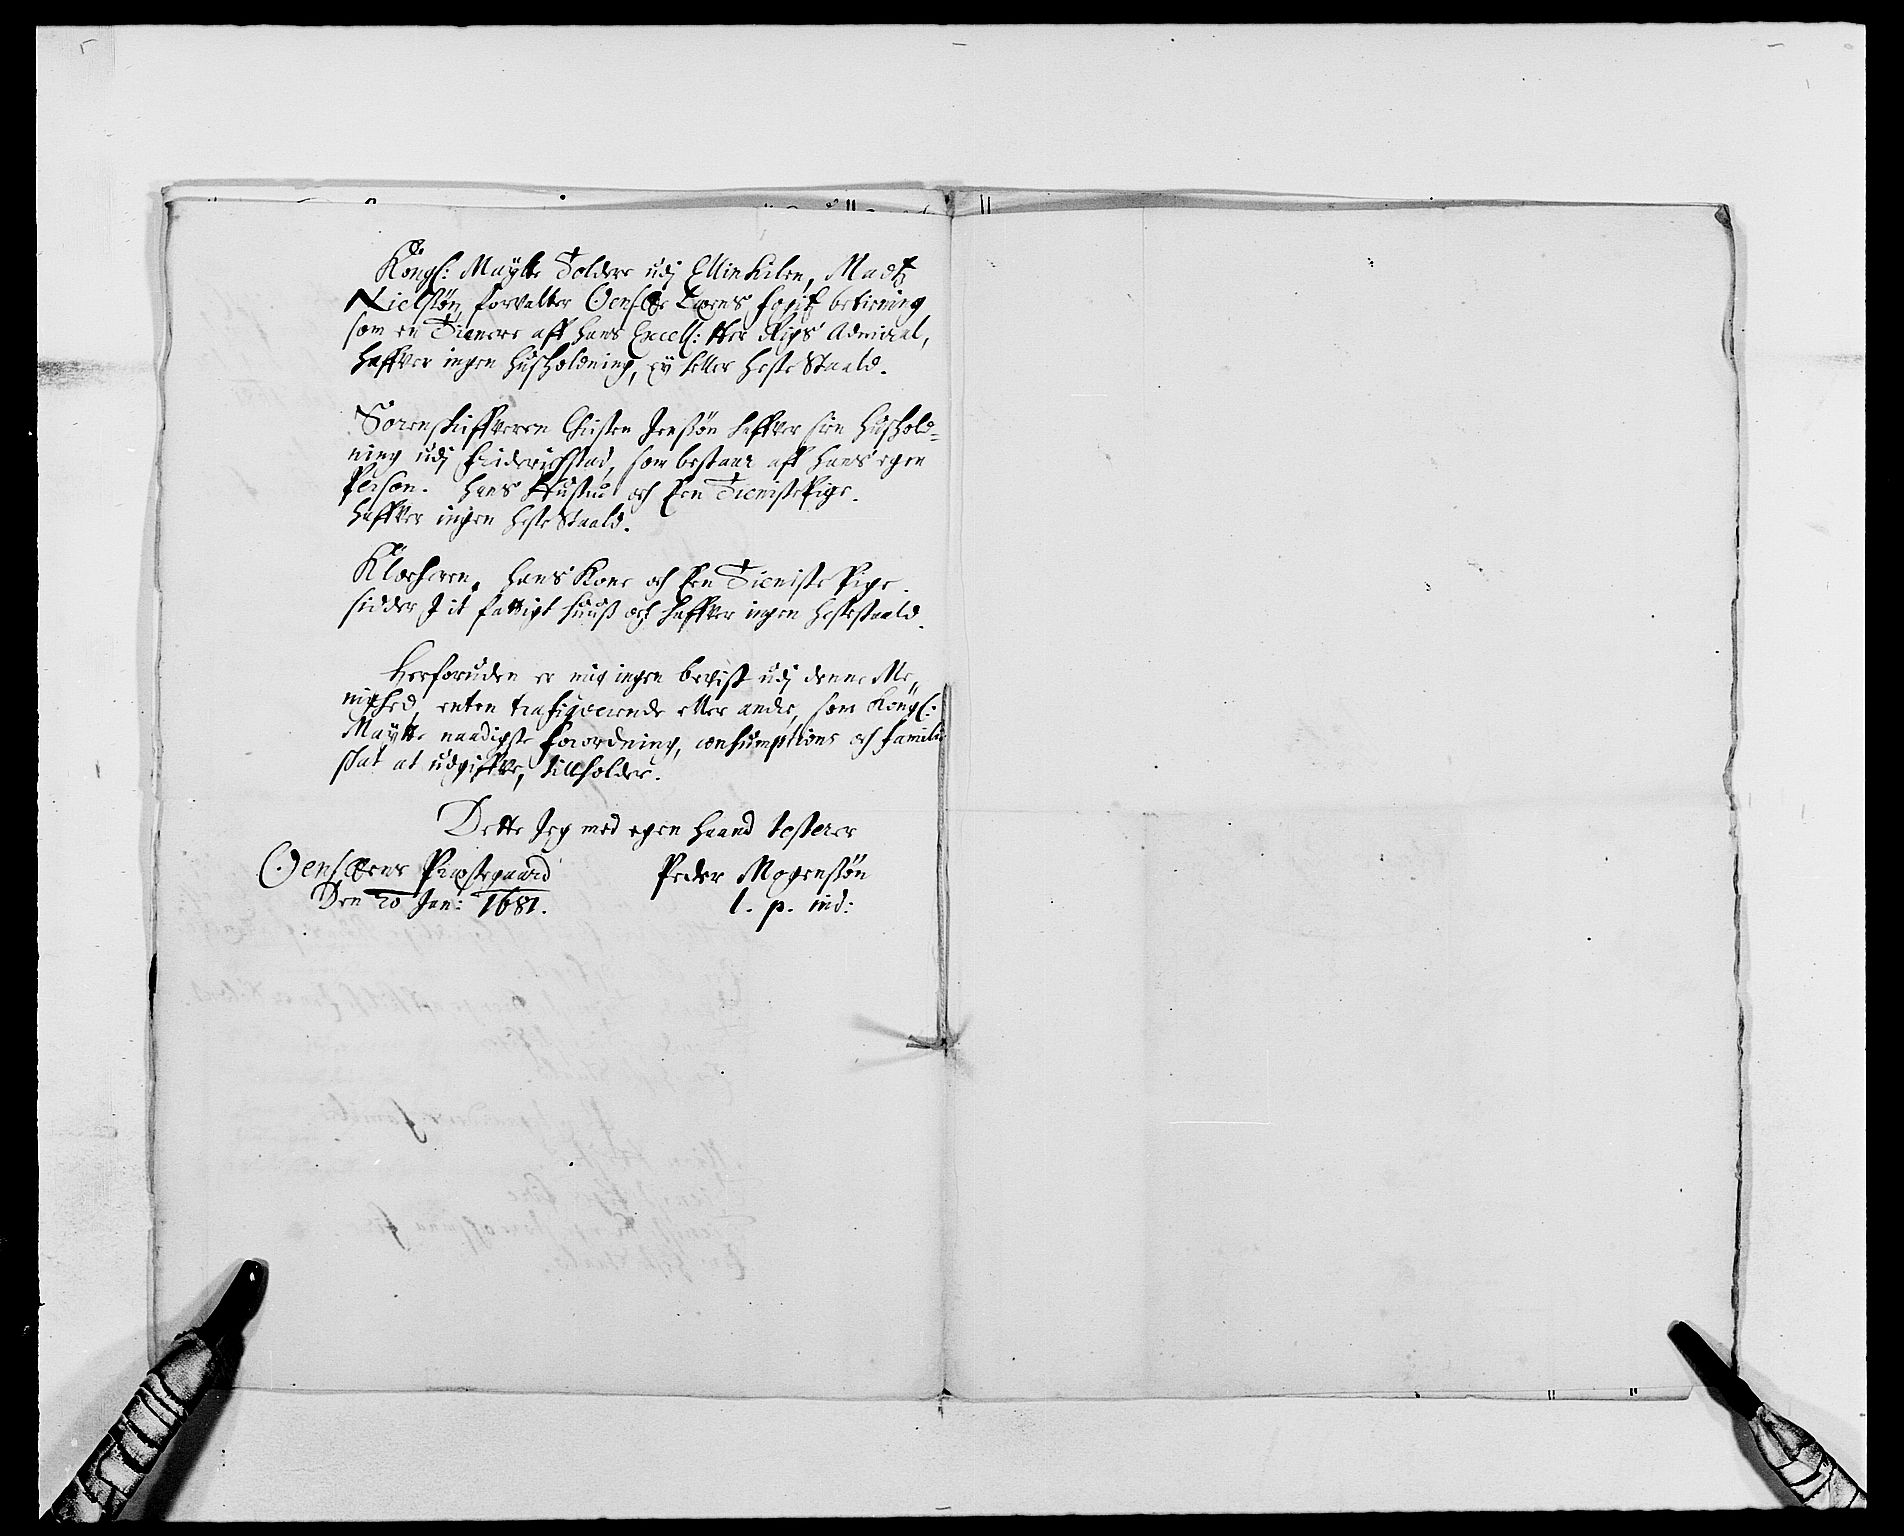 Kongl: Maÿtts Tolder udj Ellinkilen, Madtz
Nielsøn, forvalter Oensøe Læns fogit betiening
som en Tienere aff hans Excell: Her Rigs Admiral,
haffver ingen huusholdning, eÿ heller heste Staald.
Sorenskriffveren Christen Jensøn haffver sin huushold=
ning udj Friderichstad, som bestaar aff hans egen
Person. hans Hustru och Een Tieniste Pige.
haffver ingen heste Staald.
Klocheren, hans Kone och Een Tieniste Pige.
sidder J it fattigt huuß och haffver ingen hestestaald.
Herforuden er mig ingen bevist udj denne Me„
nighed, enten trafiqverende eller andre, som Kongl:
Maÿtts naadigste forordning, consumptions och familie
skat at udgiffve, tillholder.
Dette Jeg med egen haand testerer
Oensøens Præstegaard Peder Mogensøn
Den 20 Jan: 1681. l. p. md: